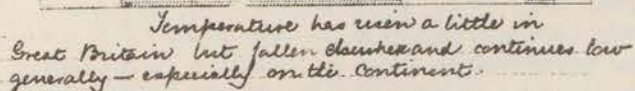 Temperature has risen a little in
Great Britain but fallen elsewhere and continues low
generally — especially on the Continent.